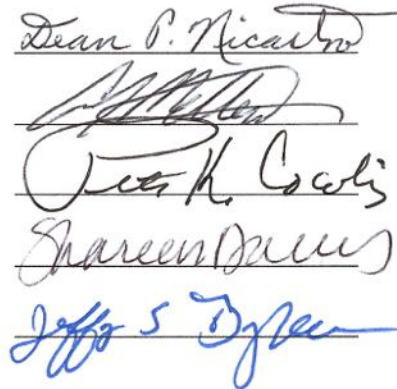 Dean P. Nicastro
Peter K. Cocolis
Shareen Davis
Jeffrey S. Dykens